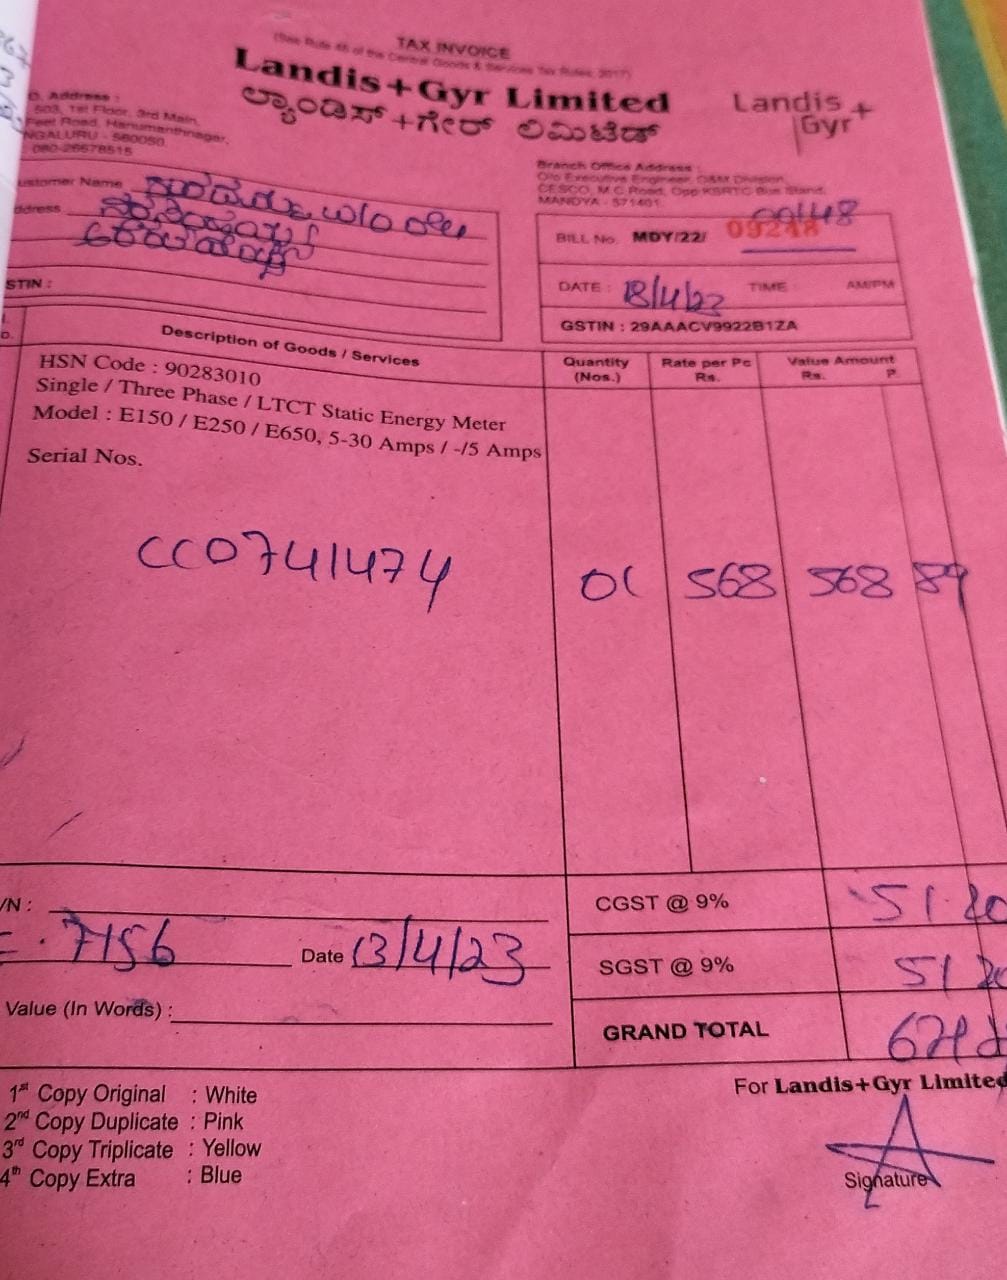 TAX INVOICE
(See Rule 46 of the Central Goods & Services Tax Rules, 2017)
Landis+Gyr Limited
ಲ್ಯಾಂಡಿಸ್ +ಗೇರ್ ಲಿಮಿಟೆಡ್
Landis+
Gyr
O. Address :
503, 1st Floor, 3rd Main,
Feet Road, Hanumanthnagar,
NGALURU - 560050.
080-26678515
Branch Office Address :
O/o Executive Engineer, O&M Division,
CESCO, M.C.Road, Opp KSRTC Bus Stand,
MANDYA - 571401.
ustomer Name
ddress
STIN :
00148
BILL No. MDY/22/ 09248
DATE : 18/4/23 TIME : AM/PM
GSTIN : 29AAACV9922B1ZA
Description of Goods / Services
Quantity (Nos.)
Rate per Pc Rs.
Value Amount Rs. P.
HSN Code : 90283010
Single / Three Phase / LTCT Static Energy Meter
Model : E150 / E250 / E650, 5-30 Amps / -/5 Amps
Serial Nos.
CC0741474 01 568 568 89
/N :
7156 Date 13/4/23
Value (In Words) :
CGST @ 9% 51.20
SGST @ 9% 51 20
GRAND TOTAL
1st Copy Original : White
2nd Copy Duplicate : Pink
3rd Copy Triplicate : Yellow
4th Copy Extra : Blue
For Landis+Gyr Limited
Signature